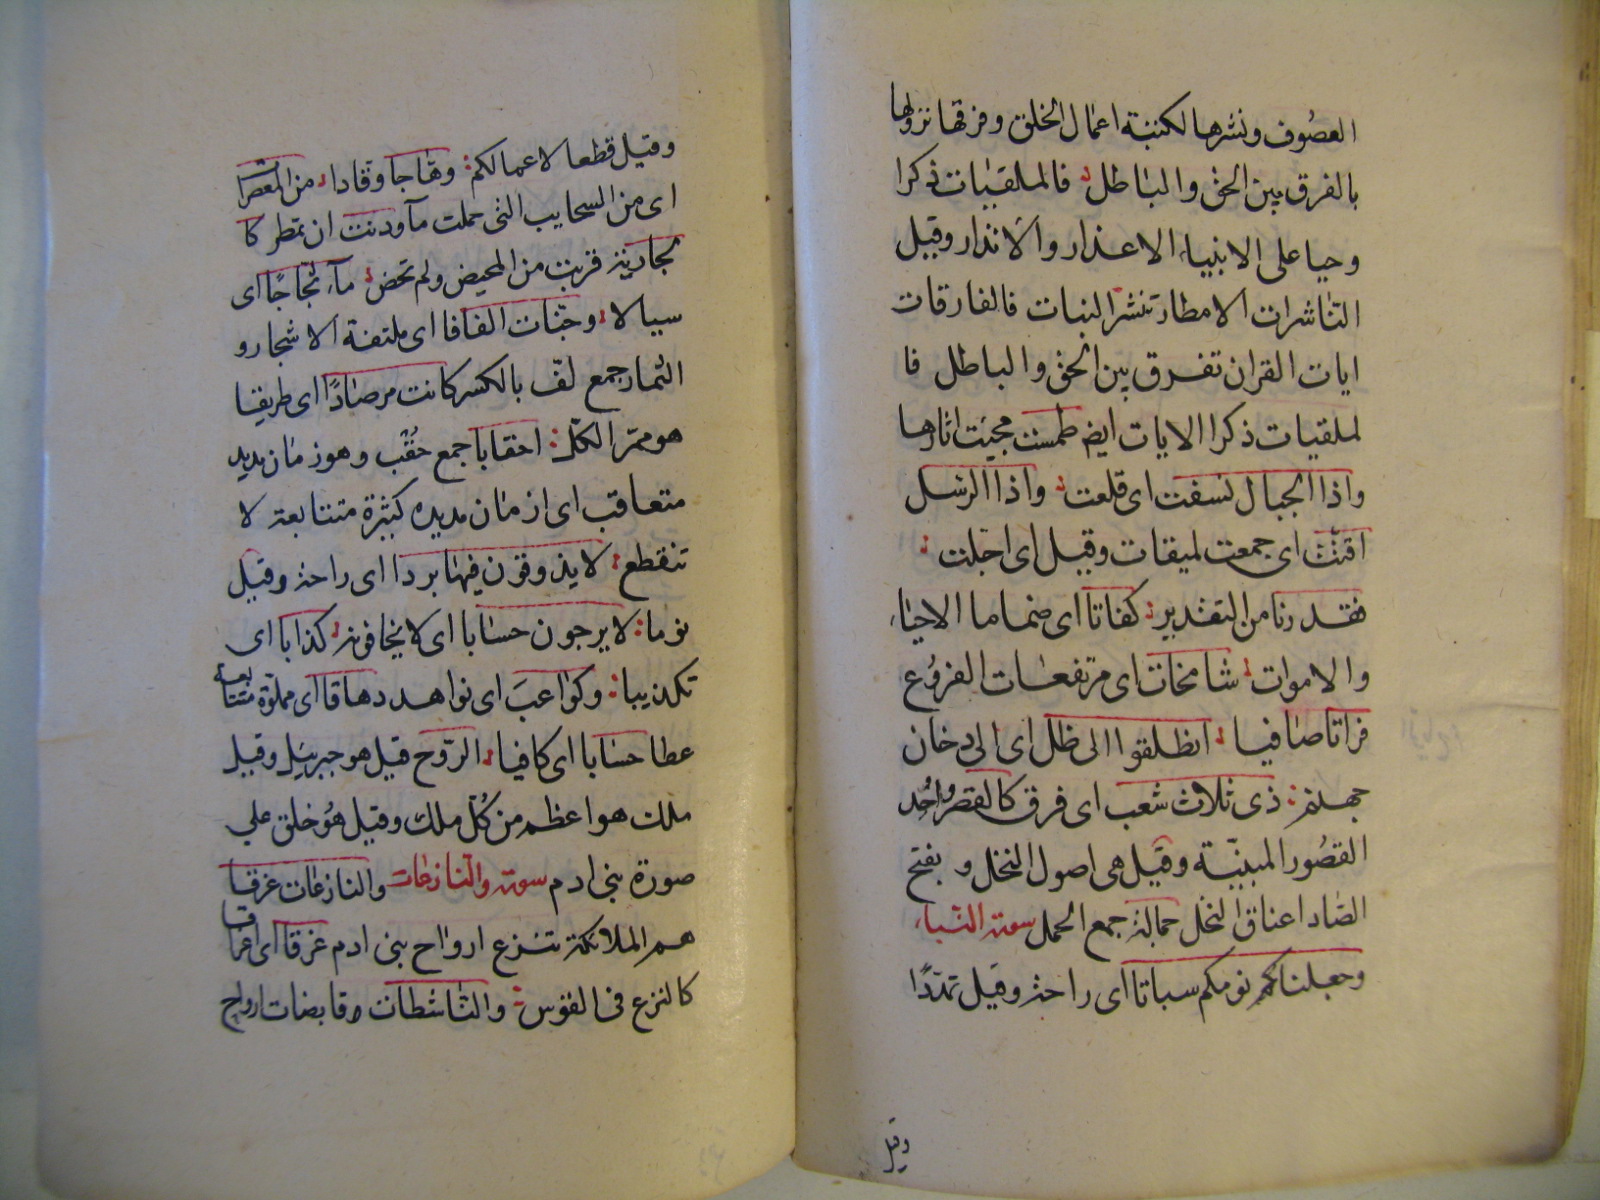 العصُوف ونشرها لكتبة اعمال الخلق وفرقها نزولها
بالفرق بين الحق والباطل فالملقيات ذكرا
وحيا على الانبياء الاعذار والانذار وقيل
الناشرات الامطار تنشر النبات فالفارقات
ايات القران تفرق بين الحق والباطل فا
لملقيات ذكرا الايات ايض طمست محيت اثارها
واذا الجبال نسفت اى قلعت واذا الرسل
اقتت اى جمعت لميقات وقيل اى اجلت
فقدرنا من التقدير كفاتا اى ضماما الاحياء
والاموات شامخات اى مرتفعات الفروع
فراتا صافيا انطلقوا الى ظل اى الى دخان
جهنم ذى ثلاث شعب اى فرق كالقصر واحد
القصُور المبنيّة وقيل هى اصول النخل و بفتح
الصاد اعناق النخل جمالة جمع الجمل سورة النباء
وجعلنا نومكم سباتا اى راحة وقيل تمدّدًا
وقيل
وقيل قطعا لاعمالكم وهاجا وقادا من المعصرات
اى من السحايب التى حملت مآ ودنت ان تمطر كا
لجارية قربت من المحيض ولم تحض مآء ثجاجًا اى
سيالا وجنّات الفافا اى ملتفة الاشجار و
الثمار جمع لفّ بالكسر كانت مرصادًا اى طريقا
هو ممرّ الكلّ احقابا جمع حُقْب وهو زمان مديد
متعاقب اى ازمان مديده كثيرة متتابعة لا
تنقطع لا يذوقون فيها بردا اى راحة وقيل
نوما لا يرجون حسابا اى لا يخافونه كذابا اى
تكذيبا وكواعبَ اى نواهد دهاقا اى مملوّة متتابعة
عطا حسابا اى كافيا الرّوح قيل هو جبريئل وقيل
ملك هو اعظم من كُلّ ملك وقيل هُو خلق على
صورة بنى ادم سورة والنازعات والنازعات غرقا
هم الملائكة تنزع ارواح بنى ادم غرقا اى اغراقا
كالنزع فى القوس والناشطات قابضات ارواح